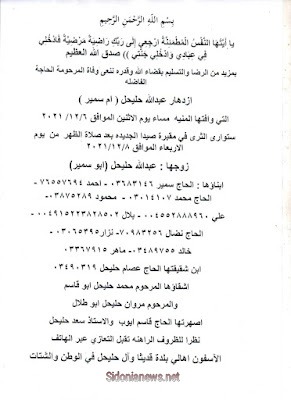 بِسْمِ اللَّهِ الرَّحْمَنِ الرَّحِيمِ
يا أَيَّتُهَا النَّفْسُ الْمُطْمَئِنَّةُ ارْجِعِي إِلَى رَبِّكِ رَاضِيَةً مَرْضِيَّةً فَادْخُلِي
فِي عِبَادِي وَادْخُلِي جَنَّتِي )) صدق الله العظيم
بمزيد من الرضا والتسليم بقضاء الله وقدره ننعى وفاة المرحومة الحاجة
الفاضله
ازدهار عبدالله حليحل ( ام سمير )
التي وافتها المنيه مساء يوم الاثنين الموافق ٢٠٢١/١٢/٦
ستوارى الثرى في مقبرة صيدا الجديده بعد صلاة الظهر من يوم
الاربعاء الموافق ٢٠٢١/١٢/٨
زوجها : عبدالله حليحل (ابو سمير)
ابناؤها : الحاج سمير ٠٣٦٨٣١٤٦ - احمد ٧٦٥٥٧٦٩٤ -
الحاج محمد ٠٣٠١٤١٠٧ - محمود ٠٣٨٧٥٢٨٩ -
علي ٠٠٤٥٥٢٨٨٨٩٦٠ - بلال ٠٠٤٩١٥٢٢٣٨٢٨٥٠٢ -
الحاج نضال ٧٠٩٨٣٢٥٦ - نزار ٠٣٠٦٥٣٩٥ -
خالد ٠٣٤٨٩٧٥٥ - ماهر ٠٣٣٦٧٩١٥
ابن شقيقتها الحاج عصام حليحل ٠٣٤٩٠٣١٩
اشقاؤها المرحوم محمد حليحل ابو قاسم
والمرحوم مروان حليحل ابو طلال
اصهرتها الحاج قاسم ايوب والاستاذ سعد حليحل
نظرا للظروف الراهنه تقبل التعازي عبر الهاتف
الآسفون اهالي بلدة قديثا وآل حليحل في الوطن والشتات
Sidonianews.net